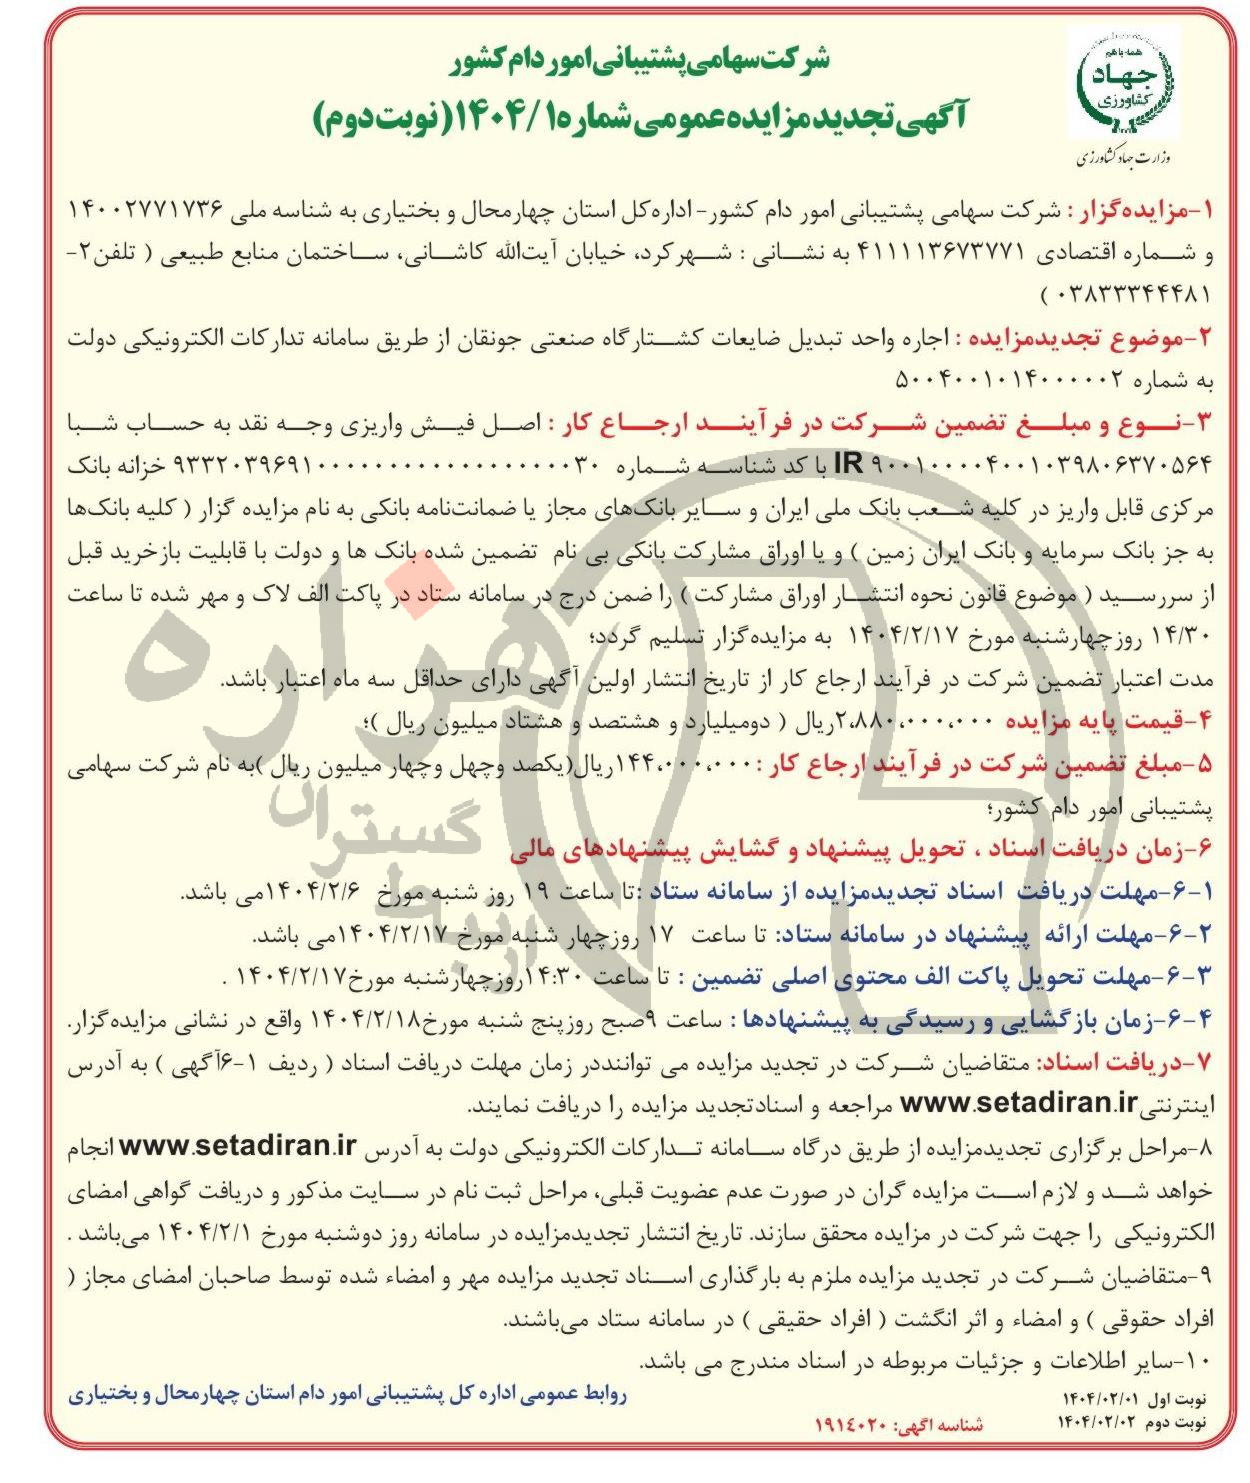 همه با هم
جهاد
کشاورزی
وزارت جهاد کشاورزی
شرکت سهامی پشتیبانی امور دام کشور
آگهی تجدید مزایده عمومی شماره ۱۴۰۴/۱ (نوبت دوم)
۱-مزایده‌گزار : شرکت سهامی پشتیبانی امور دام کشور- اداره‌کل استان چهارمحال و بختیاری به شناسه ملی ۱۴۰۰۲۷۷۱۷۳۶
و شماره اقتصادی ۴۱۱۱۱۳۶۷۳۷۷۱ به نشانی : شهرکرد، خیابان آیت‌الله کاشانی، ساختمان منابع طبیعی ( تلفن۲-
۰۳۸۳۳۳۴۴۴۸۱ )
۲-موضوع تجدیدمزایده : اجاره واحد تبدیل ضایعات کشتارگاه صنعتی جونقان از طریق سامانه تدارکات الکترونیکی دولت
به شماره ۵۰۰۴۰۰۱۰۱۴۰۰۰۰۰۲
۳-نوع و مبلغ تضمین شرکت در فرآیند ارجاع کار : اصل فیش واریزی وجه نقد به حساب شبا
IR ۹۰۰۱۰۰۰۰۴۰۰۱۰۳۹۸۰۶۳۷۰۵۶۴ با کد شناسه شماره ۹۳۳۲۰۳۹۶۹۱۰۰۰۰۰۰۰۰۰۰۰۰۰۰۰۰۰۰۳۰ خزانه بانک
مرکزی قابل واریز در کلیه شعب بانک ملی ایران و سایر بانک‌های مجاز یا ضمانت‌نامه بانکی به نام مزایده گزار ( کلیه بانک‌ها
به جز بانک سرمایه و بانک ایران زمین ) و یا اوراق مشارکت بانکی بی نام تضمین شده بانک ها و دولت با قابلیت بازخرید قبل
از سررسید ( موضوع قانون نحوه انتشار اوراق مشارکت ) را ضمن درج در سامانه ستاد در پاکت الف لاک و مهر شده تا ساعت
۱۴/۳۰ روزچهارشنبه مورخ ۱۴۰۴/۲/۱۷ به مزایده‌گزار تسلیم گردد؛
مدت اعتبار تضمین شرکت در فرآیند ارجاع کار از تاریخ انتشار اولین آگهی دارای حداقل سه ماه اعتبار باشد.
۴-قیمت پایه مزایده ۲،۸۸۰،۰۰۰،۰۰۰ریال ( دومیلیارد و هشتصد و هشتاد میلیون ریال )؛
۵-مبلغ تضمین شرکت در فرآیند ارجاع کار :۱۴۴،۰۰۰،۰۰۰ریال(یکصد وچهل وچهار میلیون ریال )به نام شرکت سهامی
پشتیبانی امور دام کشور؛
۶-زمان دریافت اسناد ، تحویل پیشنهاد و گشایش پیشنهادهای مالی
۶-۱-مهلت دریافت اسناد تجدیدمزایده از سامانه ستاد :تا ساعت ۱۹ روز شنبه مورخ ۱۴۰۴/۲/۶می باشد.
۶-۲-مهلت ارائه پیشنهاد در سامانه ستاد: تا ساعت ۱۷ روزچهار شنبه مورخ ۱۴۰۴/۲/۱۷می باشد.
۶-۳-مهلت تحویل پاکت الف محتوی اصلی تضمین : تا ساعت ۱۴:۳۰روزچهارشنبه مورخ۱۴۰۴/۲/۱۷ .
۶-۴-زمان بازگشایی و رسیدگی به پیشنهادها : ساعت ۹صبح روزپنج شنبه مورخ۱۴۰۴/۲/۱۸ واقع در نشانی مزایده‌گزار.
۷-دریافت اسناد: متقاضیان شرکت در تجدید مزایده می تواننددر زمان مهلت دریافت اسناد ( ردیف ۱-۶آگهی ) به آدرس
اینترنتیwww.setadiran.ir مراجعه و اسنادتجدید مزایده را دریافت نمایند.
۸-مراحل برگزاری تجدیدمزایده از طریق درگاه سامانه تدارکات الکترونیکی دولت به آدرس www.setadiran.ir انجام
خواهد شد و لازم است مزایده گران در صورت عدم عضویت قبلی، مراحل ثبت نام در سایت مذکور و دریافت گواهی امضای
الکترونیکی را جهت شرکت در مزایده محقق سازند. تاریخ انتشار تجدیدمزایده در سامانه روز دوشنبه مورخ ۱۴۰۴/۲/۱ می‌باشد .
۹-متقاضیان شرکت در تجدید مزایده ملزم به بارگذاری اسناد تجدید مزایده مهر و امضاء شده توسط صاحبان امضای مجاز (
افراد حقوقی ) و امضاء و اثر انگشت ( افراد حقیقی ) در سامانه ستاد می‌باشند.
۱۰-سایر اطلاعات و جزئیات مربوطه در اسناد مندرج می باشد.
روابط عمومی اداره کل پشتیبانی امور دام استان چهارمحال و بختیاری
نوبت اول ۱۴۰۴/۰۲/۰۱
نوبت دوم ۱۴۰۴/۰۲/۰۲
شناسه اگهی: ۱۹۱۴۰۲۰
هزاره
گستران